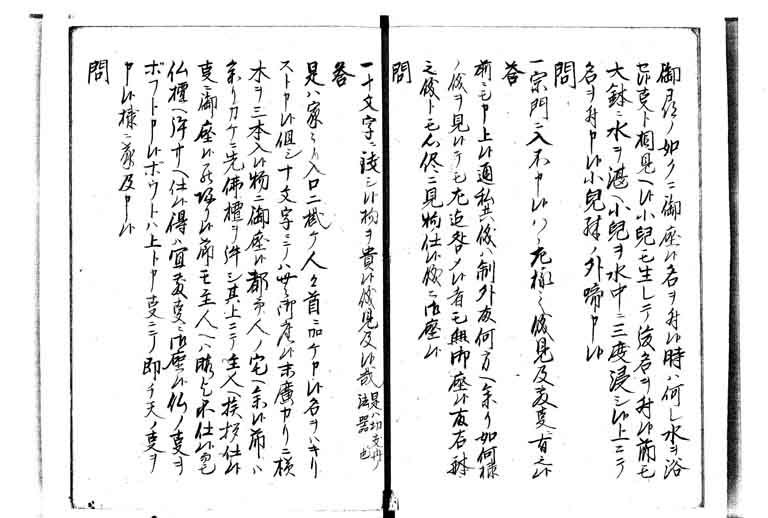 御尋ノ如クニ御座候名ヲ付候時ハ何レ水ヲ浴
候事ト相見ヘ候小兒モ生レテ後名ヲ付候節モ
大鉢ニ水ヲ湛ヘ小兒ヲ水中ニ三度浸シ候上ニテ
名ヲ付申候小兒殊ノ外啼申候
問
一宗門ニ入不申候ハヽ右様之儀見及候事有之候
答
前ニモ申上候通私共儀ハ制外故何方ヘ参リ如何様
ノ儀ヲ見候テモ左迄咎メ候者モ無御座候故右
之儀トモ心侭ニ見物仕候儀ニ御座候
問
一十文字ニ渡シ候物ヲ貴候儀見及候哉 是ハ切支丹法器也
答
是ハ家々ノ入口ニ掛ケ人々首ニ加ケ申候名ヲハキリ
スト申候但シ十文字ニテハ無御座候末廣カリニ横
木ヲ三本入候物ニ御座候都テ人ノ宅ヘ参候節ハ
参リカケニ先佛檀ヲ拝シ其上ニテ主人ヘ挨拶仕候
事ニ御座候
仏檀ヘ拝サヘ仕候得ハ宜敷事ニ御座候仏ノ事ヲ
ボウト申候ボウトハ上ト申事ニテ即チ天ノ事ヲ
申候様ニ承及申候
問